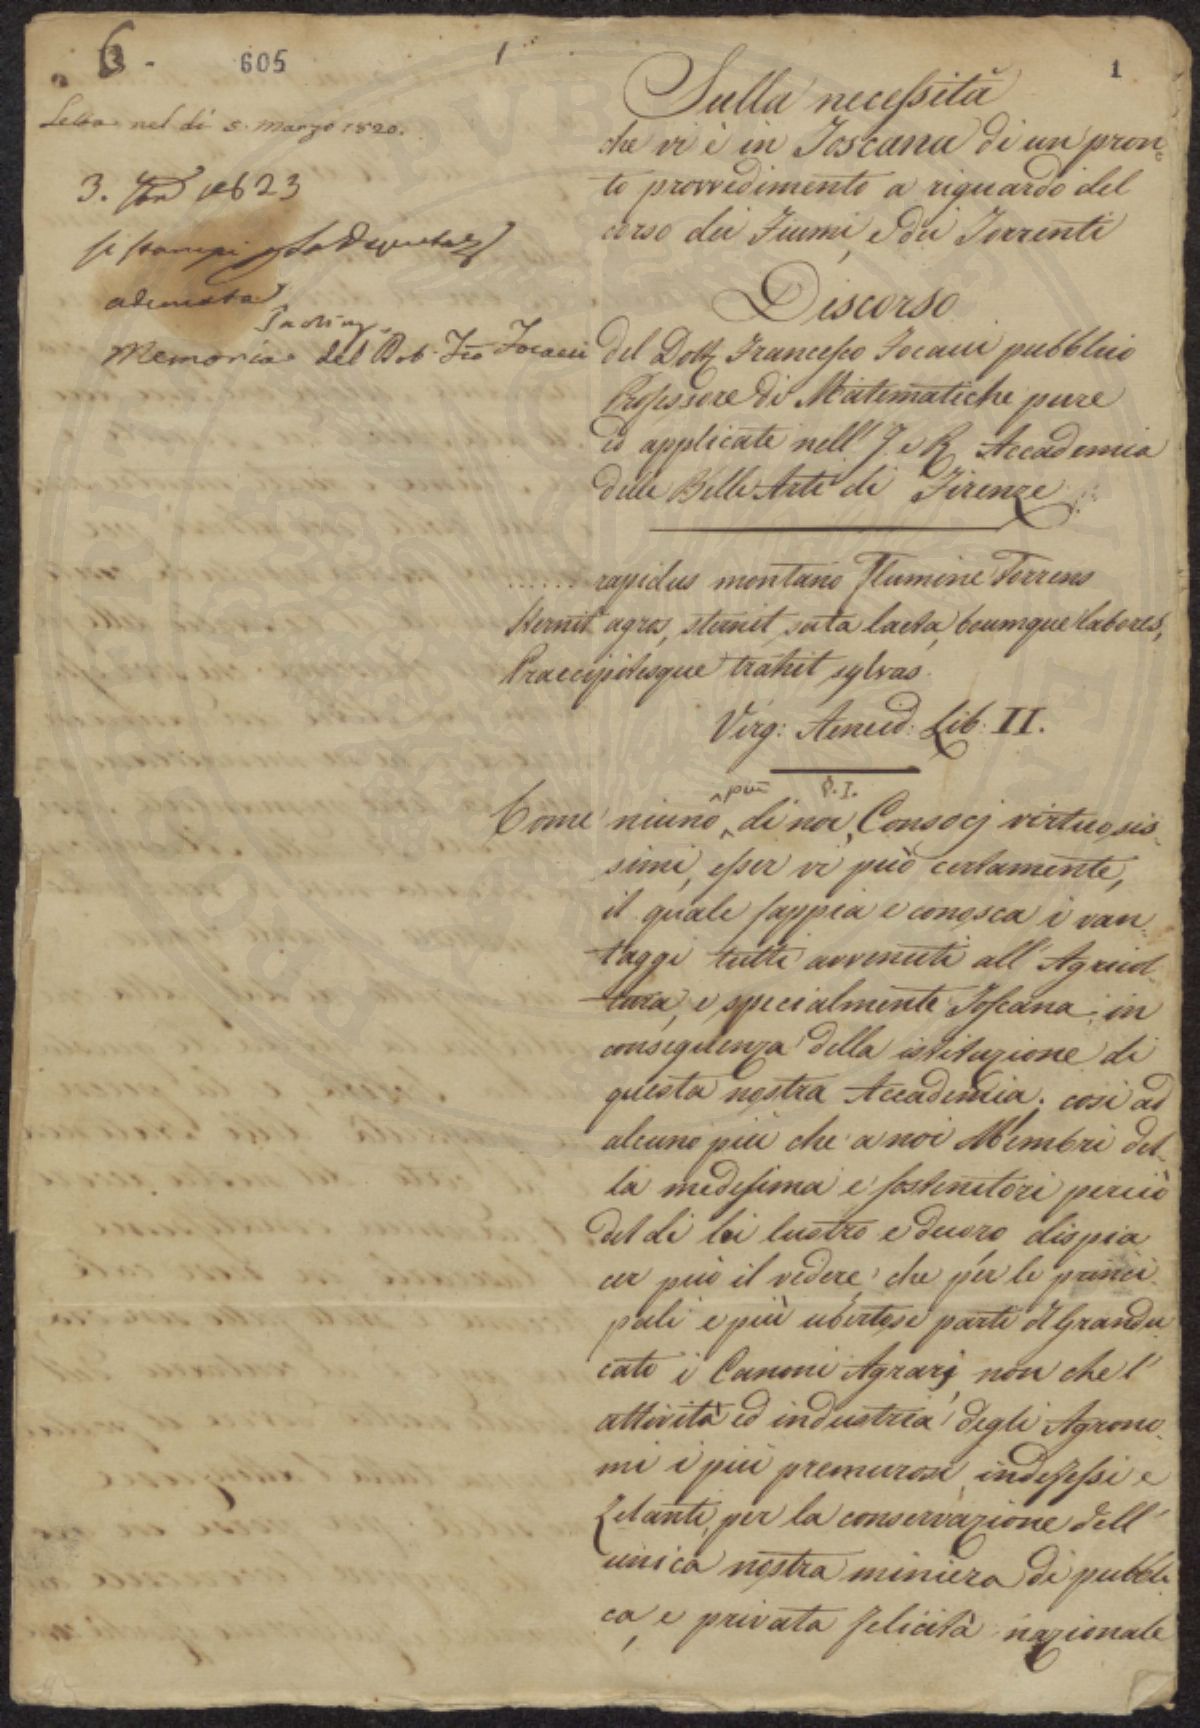 6.
605
1
1
Letta nel dì 5. Marzo 1820.
3. 1823
si stampi
Memoria del Dot. Fro Focacci
Sulla necessità
che vi è in Toscana di un pron-
to provvedimento a riguardo del
corso dei Fiumi, e dei Torrenti
Discorso
del Dott. Francesco Focacci pubblico
Professore di Matematiche pure
ed applicate nell' I. e R. Accademia
delle Belle Arti di Firenze
...... rapidus montano Flumine Torrens
Sternit agros, sternit sata laeta, boumque labores,
Praecipitesque trahit sylvas.
Virg: Aeneid: Lib: II.
più P.I.
Come niuno di noi, Consocj virtuosis-
simi, esser vi può certamente,
il quale sappia e conosca i van-
taggi tutti avvenuti all' Agricol-
tura, e specialmente Toscana in
conseguenza della istituzione di
questa nostra Accademia; così ad
alcuno più che a noi Membri del-
la medesima e sostenitori perciò
del di lei lustro e decoro dispia
cer può il vedere, che per le princi-
pali e più ubertose parti del Grandu
cato i Canoni Agrarj, non che l'
attività ed industria degli Agrono-
mi i più premurosi indefessi e
Zelanti, per la conservazione dell'
unica nostra miniera di pubbli-
ca, e privata felicità nazionale